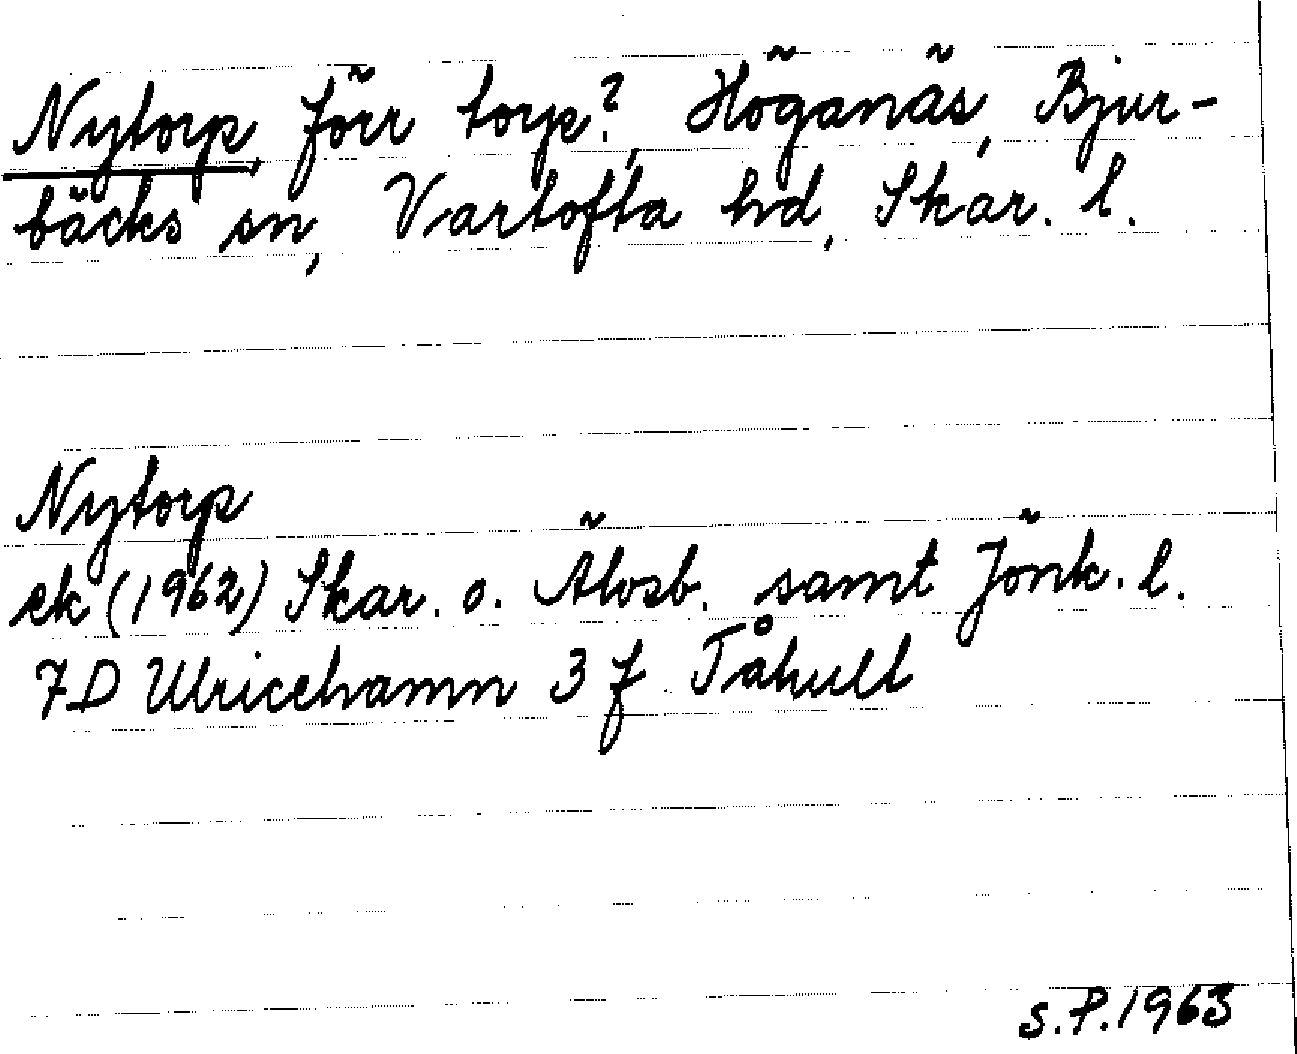 Nytorp, förr torp?, Höganäs, Bjur-
bäcks sn, Vartofta hd, Skar. l.
Nytorp
ek (1962) Skar. o. Älvsb. samt Jönk. l.
7D Ulricehamn 3 f Tåhult
S.P. 1963